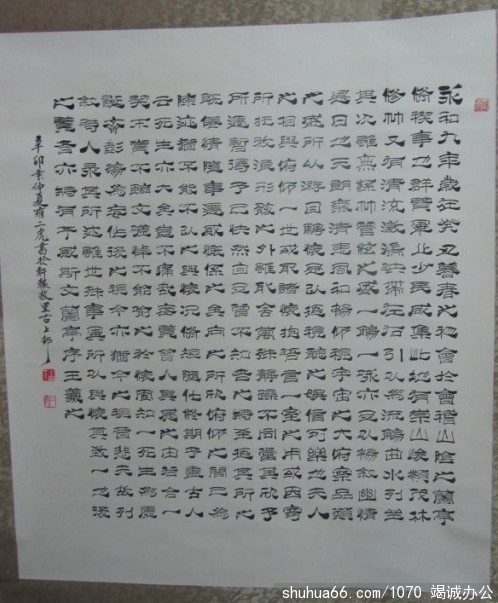 永和九年歲在癸丑暮春之初會於會稽山陰之蘭亭
脩禊事也群賢畢至少長咸集此地有崇山峻領茂林
脩竹又有清流激湍映帶左右引以為流觴曲水列坐
其次雖無絲竹管絃之盛一觴一詠亦足以暢敘幽情
是日也天朗氣清惠風和暢仰觀宇宙之大俯察品類
之盛所以遊目騁懷足以極視聽之娛信可樂也夫人
之相與俯仰一世或取諸懷抱悟言一室之內或因寄
所託放浪形骸之外雖趣舍萬殊靜躁不同當其欣於
所遇暫得於己快然自足不知老之將至及其所之
既倦情隨事遷感慨係之矣向之所欣俯仰之間已為
陳迹猶不能不以之興懷況脩短隨化終期於盡古人
云死生亦大矣豈不痛哉每覽昔人興感之由若合一
契未嘗不臨文嗟悼不能喻之於懷固知一死生為虛
誕齊彭殤為妄作後之視今亦猶今之視昔悲夫故列
敘時人錄其所述雖世殊事異所以興懷其致一也後
之覽者亦將有感於斯文蘭亭序王羲之
辛卯仲夏二虎書於軒轅故里古上
shuhua66.com/1070 竭诚办公